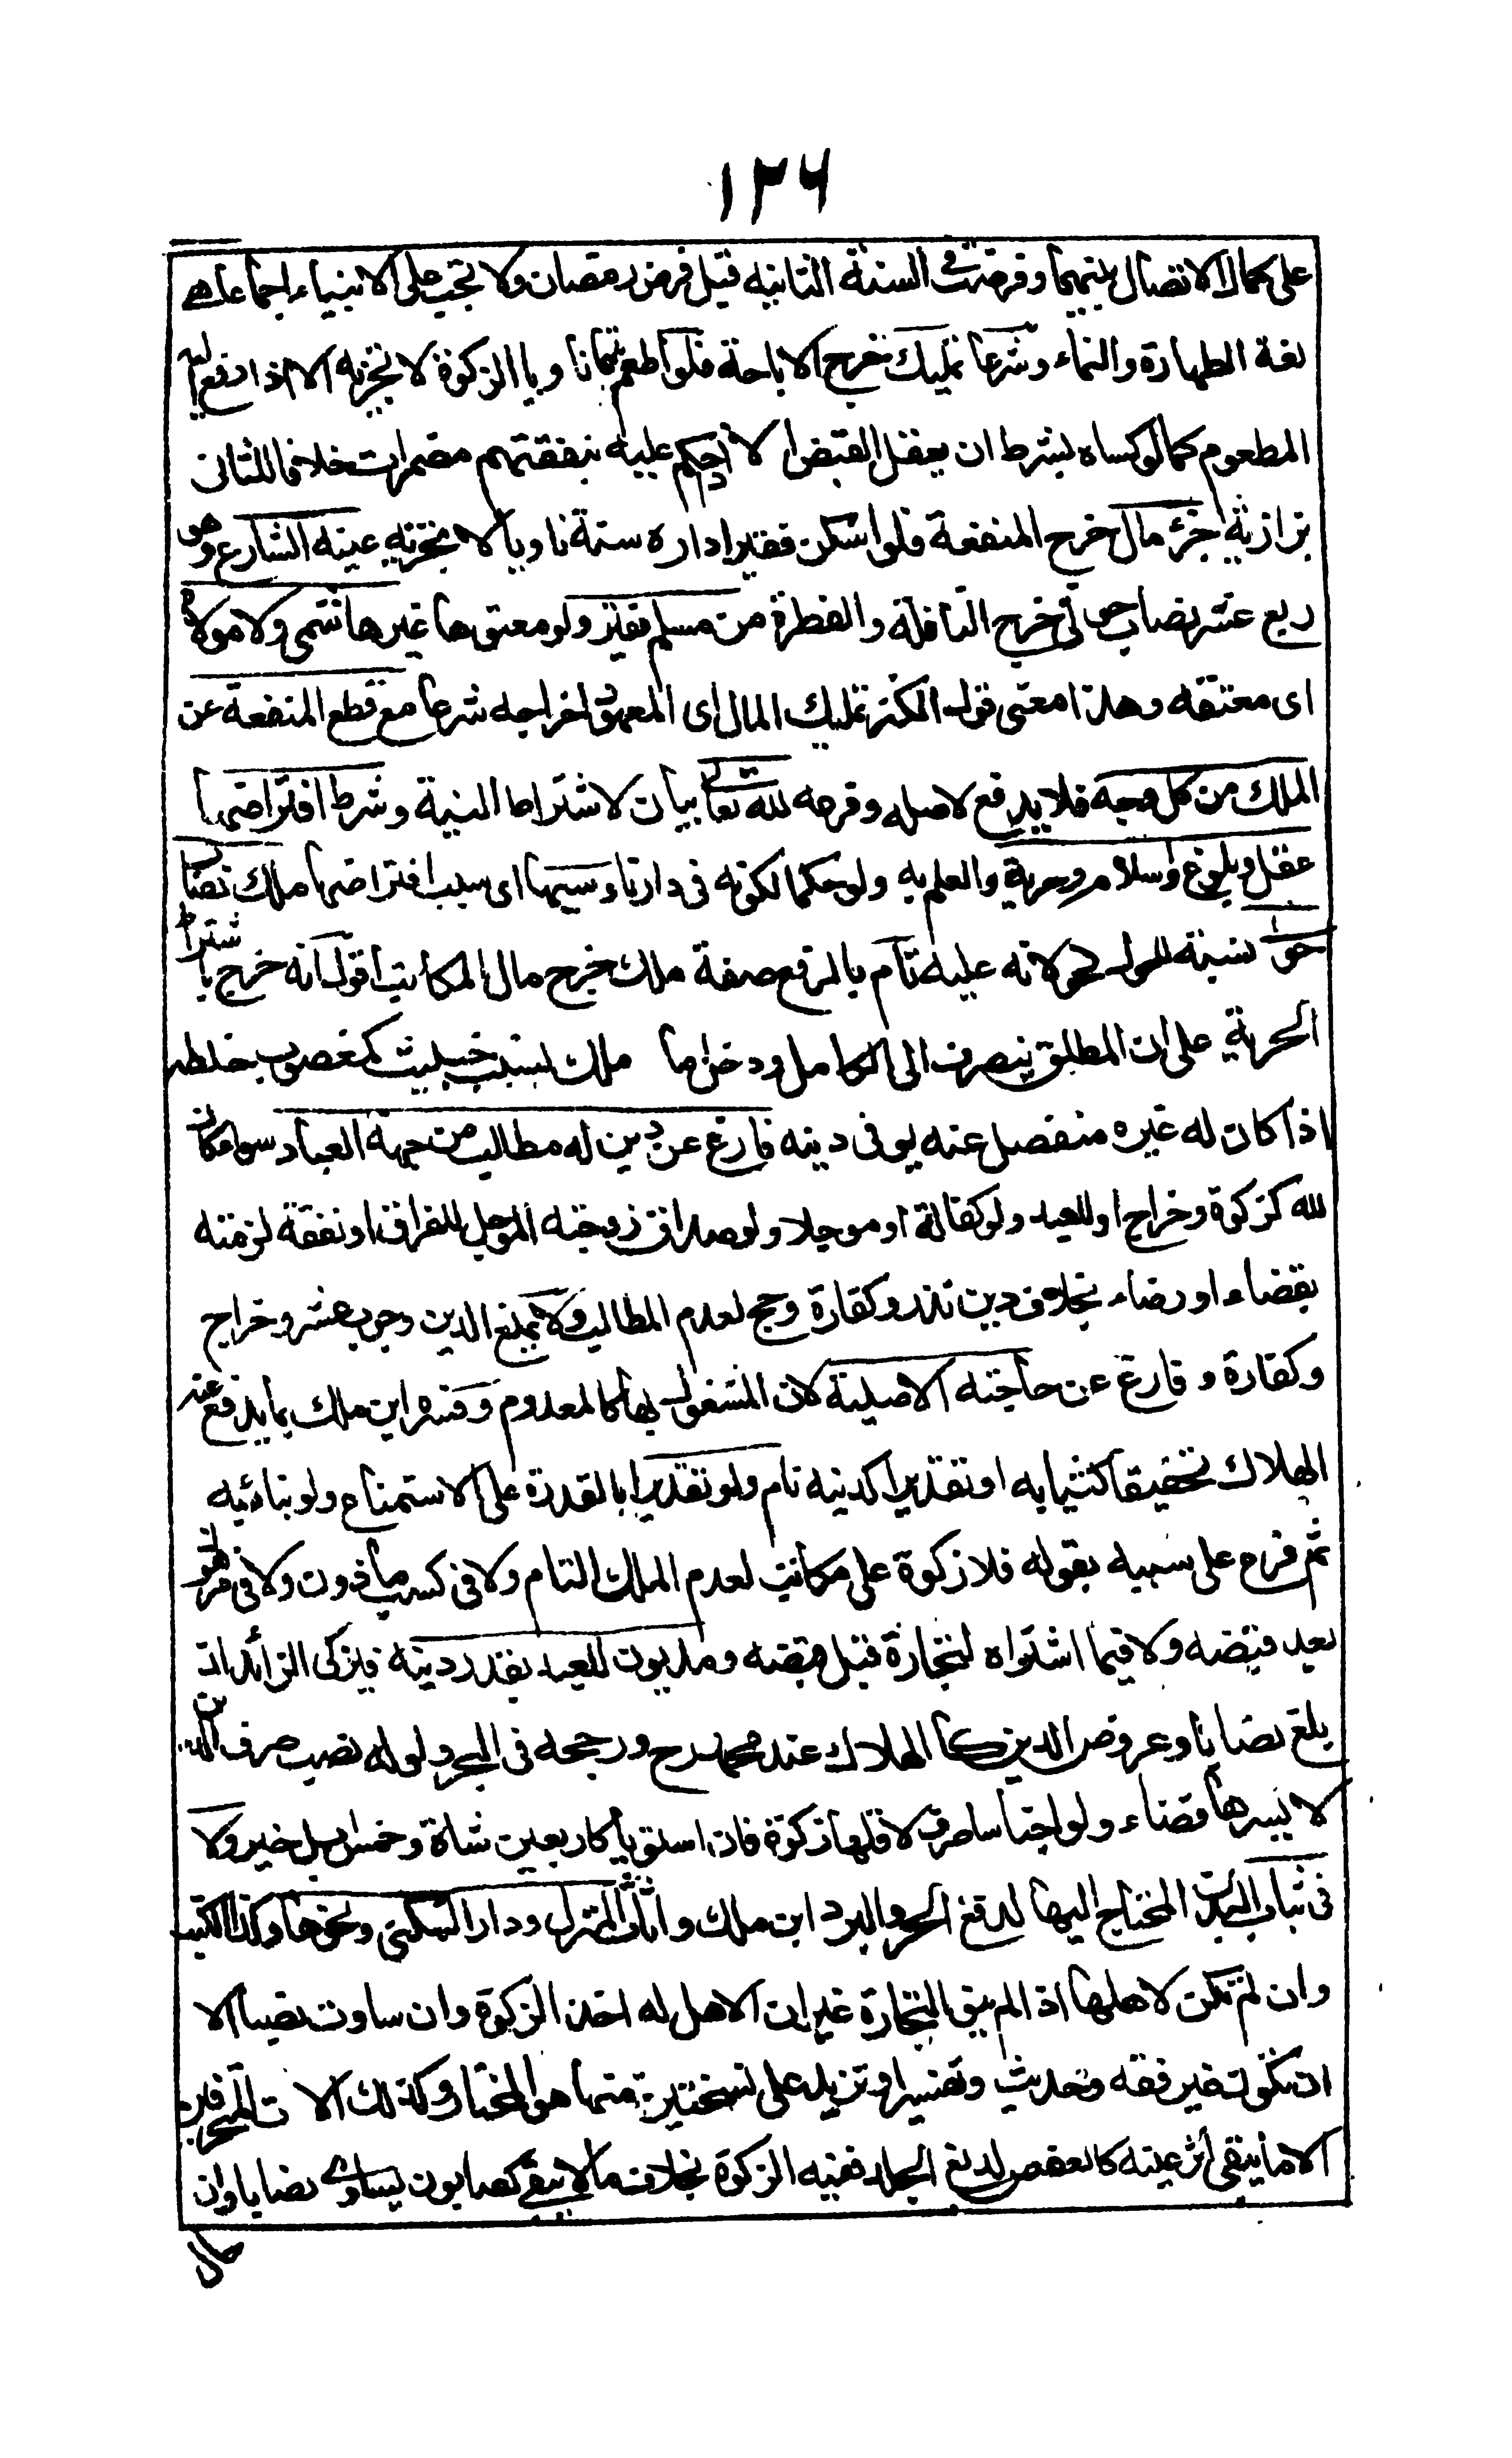 ١٣٦
على كمال الاتصال بينهما وفرضت في السنة الثانية قبل فرض رمضان ولا تجب على الانبياء اجماعا هي
لغة الطهارة والنماء وشرعا تمليك خرج الاباحة فلو اطعم يتيما ناويا الزكوة لا تجزيه الا اذا دفع اليه
المطعوم كما لو كساه بشرط ان يعقل القبض الا اذا حكم عليه بنفقتهم مضمرات خلافا للثانى
بزازية جزء مال خرج المنفعة فلو اسكن فقيرا داره سنة ناويا لا تجزيه عينه الشارع وهو
ربع عشر نصاب حولى خرج النافلة والفطرة من مسلم فقير ولو معتوها غير هاشمى ولا مولاه
اى معتقه وهذا معنى قول الكنز تمليك المال اى المعهود اخراجه شرعا مع قطع المنفعة عن
الملك من كل وجه فلا يدفع لاصله وفرعه لله تعالى بيان لاشتراط النية وشرط افتراضها
عقل وبلوغ واسلام وحرية والعلم به ولو حكما لكونه فى دارنا وسببها اى سبب افتراضها ملك نصاب
حولى نسبة للحول لحولانه عليه تام بالرفع صفة ملك خرج مال المكاتب اقول انه خرج باشتراط
الحرية على ان المطلق ينصرف الى الكامل ودخل ما ملك بسبب خبيث كمغصوب خلطه
اذا كان له غيره منفصل عنه يوفى دينه فارغ عن دين له مطالب من جهة العباد سواء كان
لله كزكوة وخراج او للعبد ولو كفالة او موجلا ولو صداق زوجته الموجل للفراق او نفقة لزمته
بقضاء او رضاء بخلاف دين نذر وكفارة وحج لعدم المطالب ولا يمنع الدين وجوب عشر وخراج
وكفارة وفارغ عن حاجته الاصلية لان المشغول بها كالمعدوم وفسره ابن ملك بما يدفع عنه
الهلاك تحقيقا كثيابه او تقديرا كدينه نام ولو تقديرا بالقدرة على الاستمناء ولو بنائبه
ثم فرع على سببه بقوله فلا زكوة على مكاتب لعدم الملك التام ولا فى كسب ماذون ولا فى مرهون
بعد قبضه ولا فيما اشتراه لتجارة قبل قبضه ومديون للعبد بقدر دينه فيزكى الزائد ان
بلغ نصابا وعروض الدين كالهلاك عند محمد رح ورجحه فى البحر ولو له نصب صرف الدين
لا يسرها قضاء ولو اجناسا صرف لاقلها زكوة فان استويا كاربعين شاة وخمس ابل خير ولا
فى ثياب البدن المحتاج اليها لدفع الحر والبرد ابن ملك واثاث المنزل ودار السكنى ونحوها وكذا الكتب
وان لم تكن لاهلها اذا لم ينو التجارة غير ان الاهل له اخذ الزكوة وان ساوت نصبا الا
ان تكون غير فقه وحديث وتفسير او تزيد على نسختين منها هو المختار وكذلك الات المحترفين
الا ما يبقى اثر عينه كالعفص لدبغ الجلد ففيه الزكوة بخلاف ما لا يبقى كصابون يساوى نصابا وان